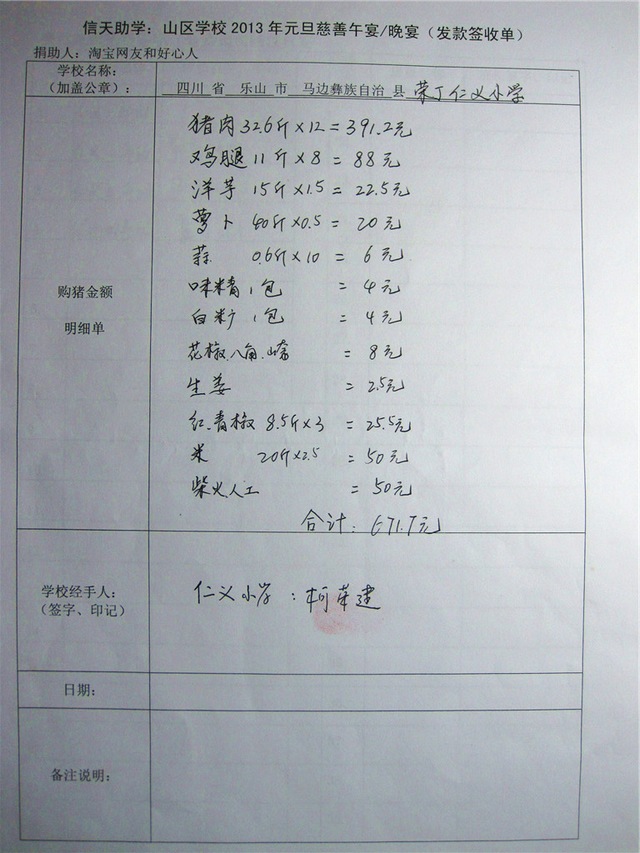 信天助学：山区学校 2013 年元旦慈善午宴/晚宴（发款签收单）
捐助人：淘宝网友和好心人
学校名称：
（加盖公章）：
四川 省 乐山 市 马边彝族自治 县 荣丁仁义小学
购猪金额
明细单
猪肉 32.6斤×12=391.2元
鸡腿 11斤×8=88元
洋芋 15斤×1.5=22.5元
萝卜 40斤×0.5=20元
蒜 0.6斤×10=6元
味精1包=4元
白粉1包=4元
花椒.八角.=8元
生姜=2.5元
红.青椒 8.5斤×3=25.5元
米 20斤×2.5=50元
柴火人工=50元
合计：671.7元
学校经手人：
（签字、印记）
仁义小学：柯荣建
日期：
备注说明：